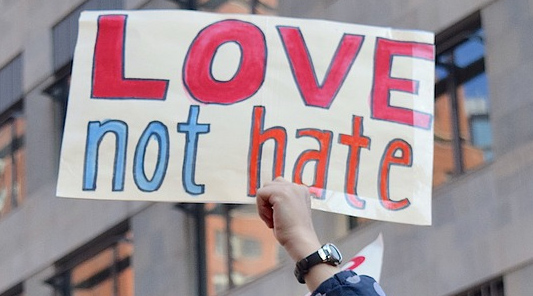 LOVE
not hate